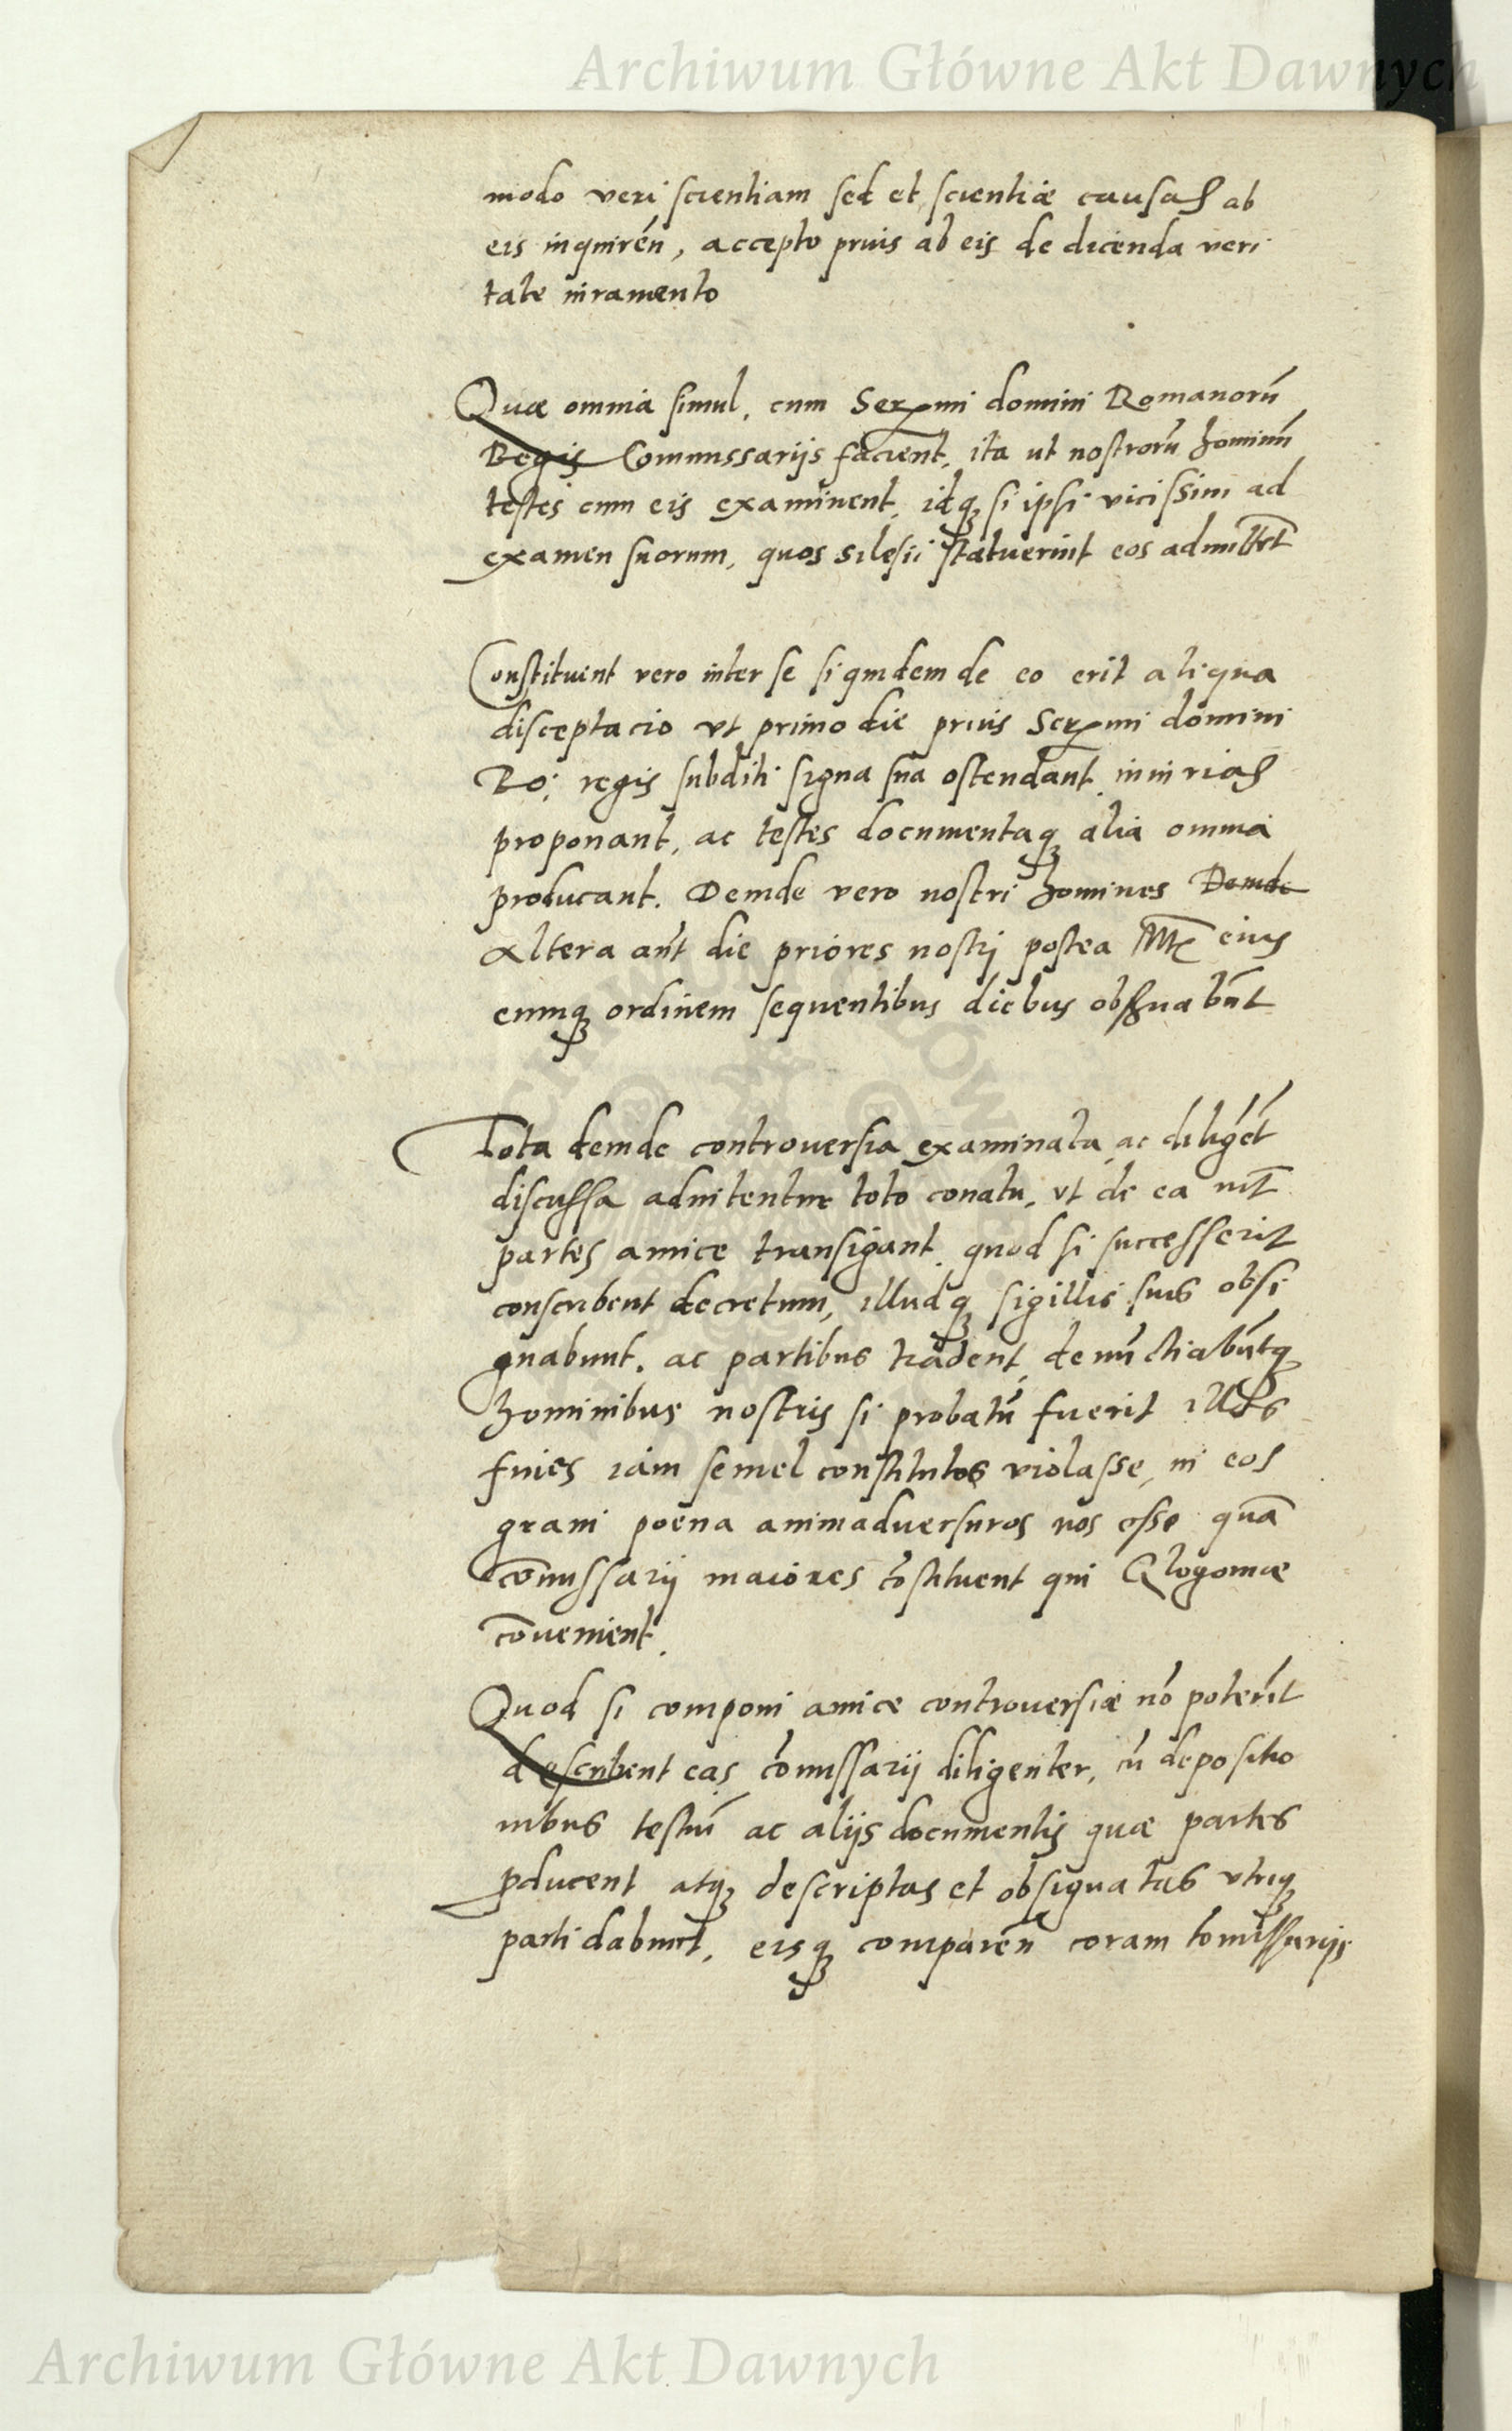 Archiwum Główne Akt Dawnych
modo veri scientiam sed et scientiæ causas ab
eis inquirẽn, accepto prius ab eis de dicenda veri
tate iuramento
Quæ omnia simul, cum Serᵐⁱ domini Romanorũ
Regis Commissarijs facient, ita ut nostrorũ hominũ
testes cum eis examinent, idq; si ipsi vicissim ad
examen suorum, quos silesii statuerint eos admittẽt
Constituent vero inter se siquidem de eo erit aliqua
disceptacio vt primo die prius Serᵐⁱ domini
Ro: regis subditi signa sua ostendant, iniurias
proponant, ac testes documentaq; alia omnia
producant. Deinde vero nostri homines Deinde
Altera aũt die priores nostri postea Mtis eius
eumq; ordinem sequentibus diebus obseruabũt
Tota deinde controuersia examinata, ac diligẽt
discussa adnitentur toto conatu, vt de ea int̃
partes amice transigant, quod si successerit
conscribent decretum, illudq; sigillis suis obsi
gnabunt, ac partibus tradent, denũctiabũtq;
hominibus nostris si probatũ fuerit illos
fines iam semel constitutos violasse, in eos
graui poena animaduersuros nos esse quã
cõmissarij maiores cõstituent qui Glogouiæ
cõuenient.
Quod si componi amice controuersiæ nõ poterĩt
describent eas cõmissarij diligenter, cũ depositio
nibus testiũ ac alijs documentis quæ partes
pducent atq; descriptas et obsignatas vtriq;
parti dabunt, eisq; comparẽn coram Comissarijs
Archiwum Główne Akt Dawnych